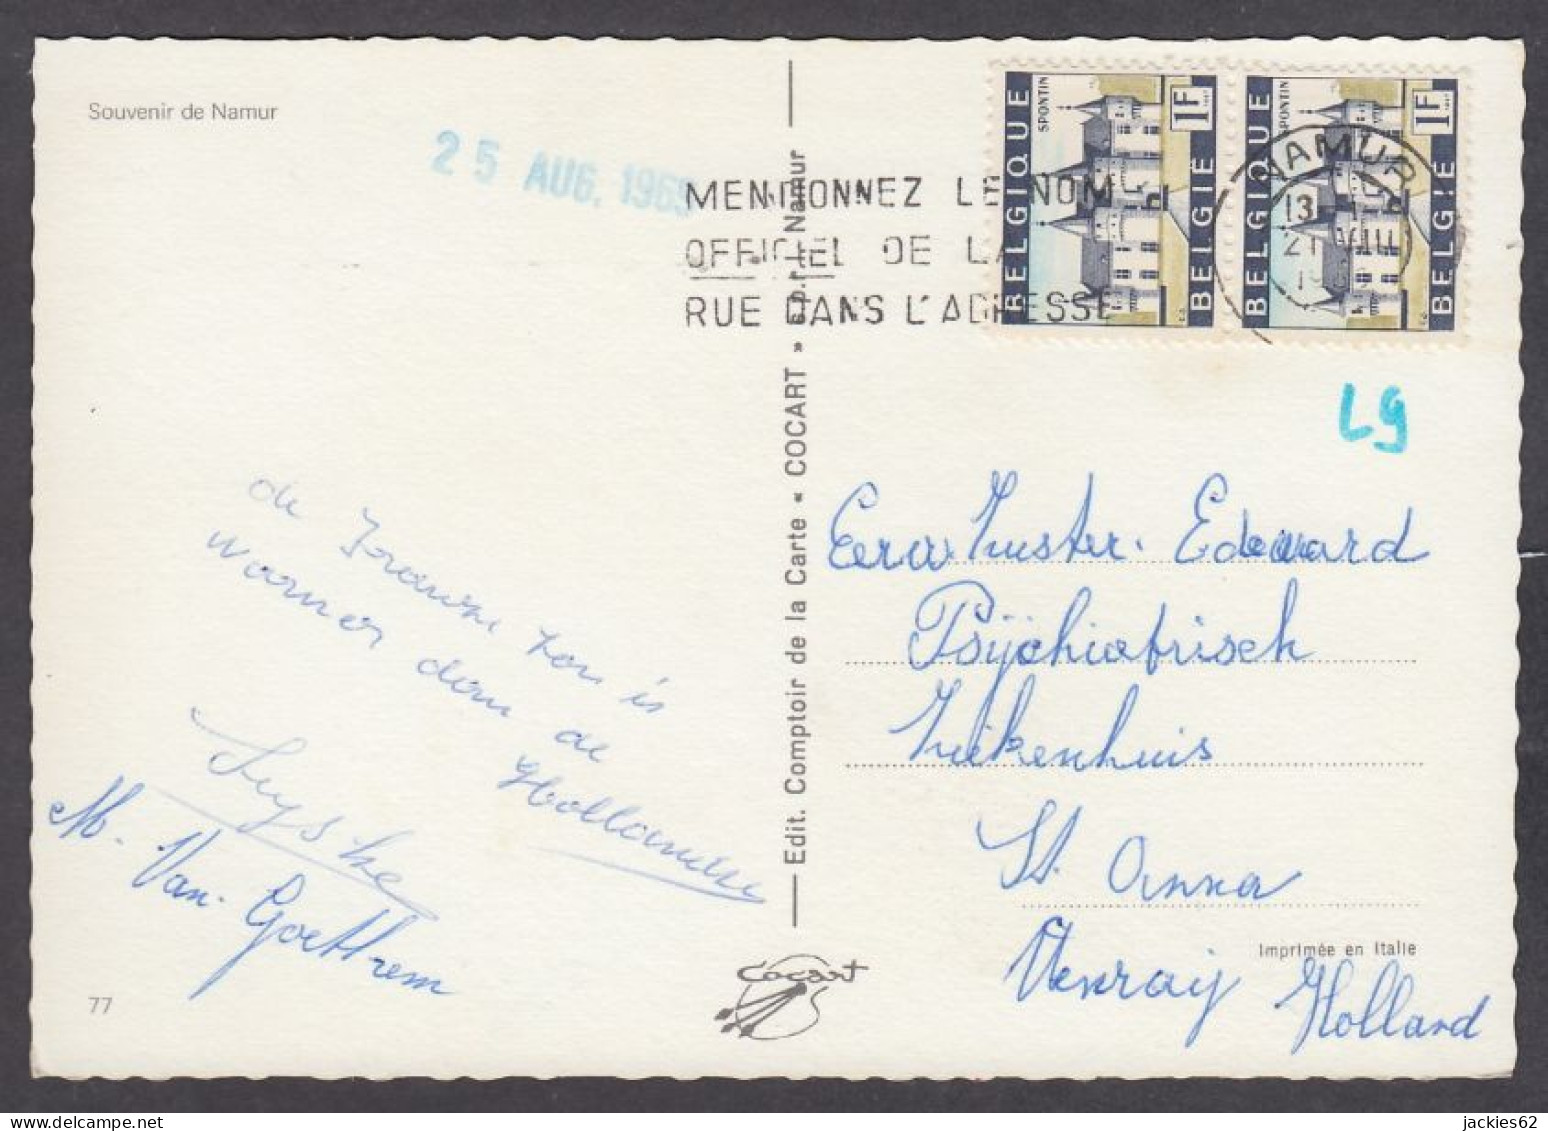 Souvenir de Namur
25 AUG. 1969
MENTIONNEZ LE NOM
OFFICIEL DE LA
RUE DANS L'ADRESSE
BELGIQUE
SPONTIN
1F
BELGIË
BELGIQUE
SPONTIN
1F
BELGIË
NAMUR
13
21 VIII
1969
L9
de Fransche zon is
warmer dan de
Hollandse
M. Van. Goethem
Eerw Zuster. Edward
Psijchiatrisch
Ziekenhuis
St. Anna
Venraij Holland
Edit. Comptoir de la Carte « COCART » s.p.r.l. Namur
Imprimée en Italie
Cocart
77
jackies62